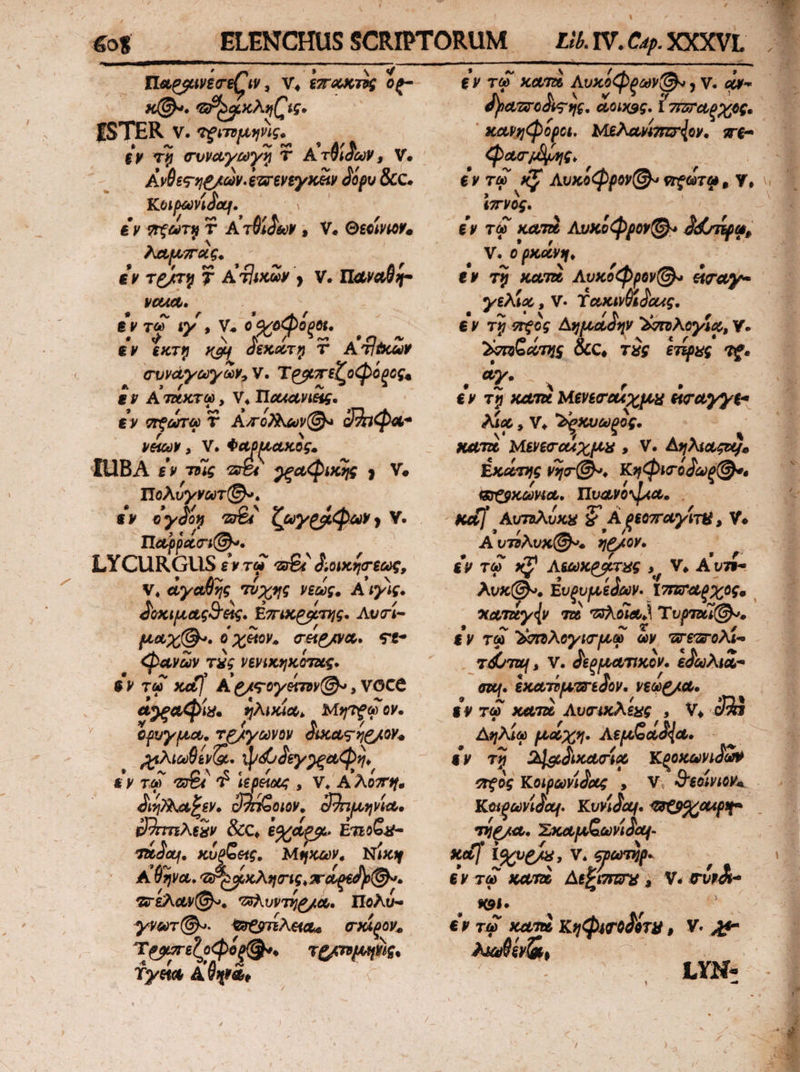 608 ELENCHUS SCRIPTORUM Lib. IV. Cap. XXXVI.
Παραινέσεσιν, v. ἐπακτὸς ὅρ-
κος. παράκλησις.
ISTER v. τριτομηνίς.
ἐν τῇ συναγωγῇ τ Ἀτθίδων, v.
Ἀνθεστηριών. ἐπενεγκεῖν δόρυ &c.
Κοιρωνίδαι.
ἐν πρώτῃ τ Ἀτθίδων, v. Θεοίνιον.
λαμπάς.
ἐν τρίτῃ τ Ἀττικῶν, v. Παναθή-
ναια.
ἐν τῷ ιγ, v. ὀσχοφόροι.
ἐν ἕκτῃ καὶ δεκάτῃ τ Ἀττικῶν
συναγωγῶν, v. Τραπεζοφόρος.
ἐν Ἀτάκτῳ, v. Παιανιεῖς.
ἐν πρώτῳ τ Ἀπόλλωνος ἐπιφα-
νειῶν, v. Φαρμακός.
IUBA ἐν τοῖς περὶ γραφικῆς, v.
Πολύγνωτος.
ἐν ὀγδόῃ περὶ ζωγράφων, v.
Παρράσιος.
LYCURGUS ἐν τῷ περὶ διοικήσεως,
v. ἀγαθῆς τύχης νεώς. Αἰγίς.
δοκιμασθείς. Ἐπικράτης. Λυσί-
μαχος. ὀχεῖον. σειρῖνα. στε-
φανῶν τοὺς νενικηκότας.
ἐν τῷ κατ' Ἀριστογείτονος, voce
ἀγραφίου. ἡλικία. Μητρῷον.
ὄρυγμα. τρίγωνον δικαστήριον.
χιλιωθέντα. ψευδεγγραφή.
ἐν τῷ περὶ τ ἱερείας, v. Ἀλόπη.
διήλλαξεν. ἐπίβοιον. ἐπιμηνία.
ἐπιπλεῖν &c. ἐσχάρα. Ἐτεοβου-
τάδαι. κύρβεις. Μήκων. Νίκη
Ἀθηνᾶ. παράκλησις, πάρεδρος.
πέλανος. πλυντήρια. Πολύ-
γνωτος. προτέλεια. σκίρον.
Τραπεζοφόρος. τριτομηνίς.
Ὑγεία Ἀθηνᾶ.
ἐν τῷ κατὰ Λυκόφρωνος, v. ἀν-
δραποδιστής. ἄοικος. ἵππαρχος.
κανηφόροι. Μελανίππειον. πε-
φασμένης.
ἐν τῷ κτ Λυκόφρονος πρώτῳ, v.
ἰπνός.
ἐν τῷ κατὰ Λυκόφρονος δευτέρῳ,
v. ὁρκάνη.
ἐν τῇ κατὰ Λυκόφρονος εἰσαγ-
γελίᾳ, v. Ὑακινθίδαις.
ἐν τῇ πρὸς Δημάδην ἀπολογίᾳ, v.
ἀποβάτης &c. τοὺς ἑτέρους τρ.
αγ.
ἐν τῇ κατὰ Μενεσαίχμου εἰσαγγε-
λίᾳ, v. ἀρκυωρός.
κατὰ Μενεσαίχμου, v. Δηλιασταί.
Ἑκάτης νῆσος. Κηφισόδωρος.
προκώνια. Πυανόψια.
κατ' Αὐτολύκου τ Ἀρεοπαγίτου, v.
Αὐτόλυκος. ἠρίον.
ἐν τῷ κτ Λεωκράτους, v. Αὐτό-
λυκος. Εὐρυμέδων. Ἵππαρχος.
κατάγειν τὰ πλοῖα. Τυρταῖος.
ἐν τῷ ἀπολογισμῷ ὧν πεπολί-
τευται, v. δερματικόν. ἑδωλιά-
σαι. ἑκατόμπεδον. νεώρια.
ἐν τῷ κατὰ Λυσικλέους, v. ἐπὶ
Δηλίῳ μάχη. Λεβάδεια.
ἐν τῇ διαδικασίᾳ Κροκωνιδῶν
πρὸς Κοιρωνίδας, v. θεοίνιον.
Κοιρωνίδαι. Κυνίδαι. προχαιρη-
τήρια. Σκαμβωνίδαι.
κατ' Ἰσχυρίου, v. στρωτήρ.
ἐν τῷ κατὰ Δεξίππου, v. σύνδι-
κοι.
ἐν τῷ κατὰ Κηφισοδότου, v. χι-
λιωθέντα.
LYN-